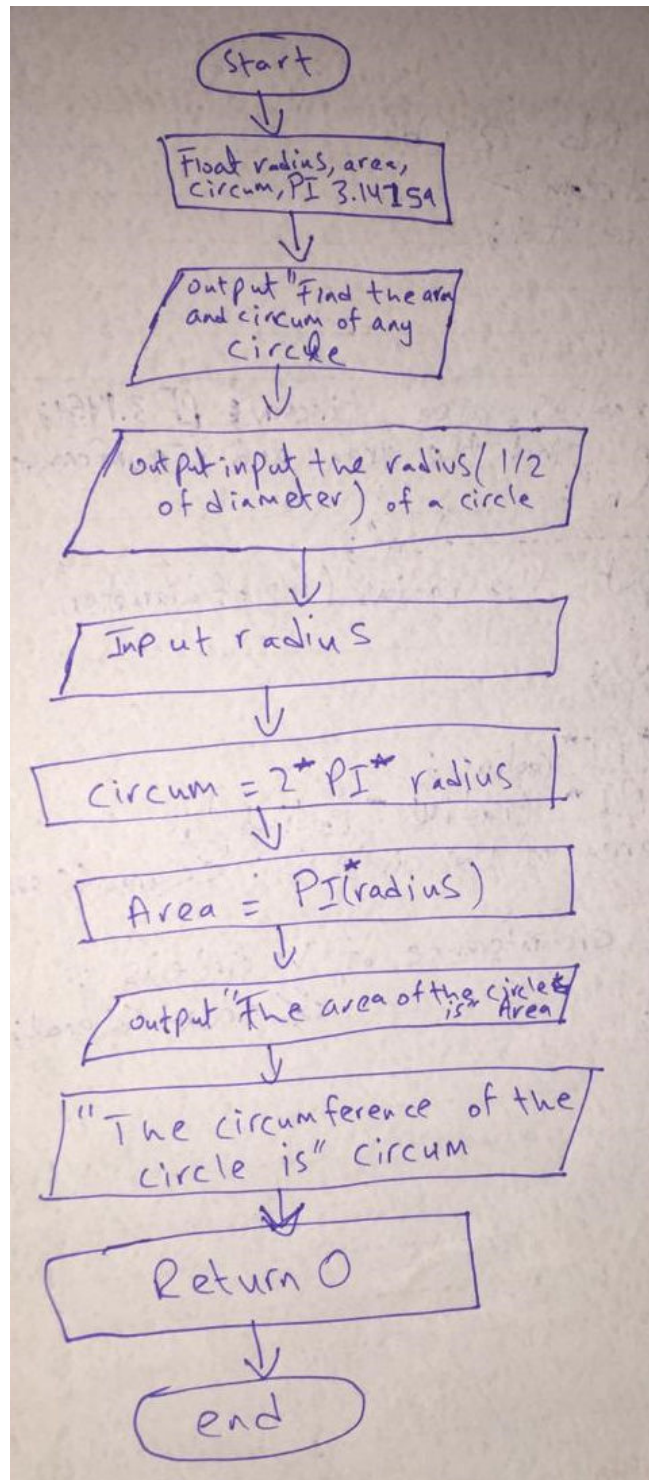 Start
Float radius, area,
circum, PI 3.14159
output "Find the area
and circum of any
circle
output input the radius ( 1/2
of diameter) of a circle
Input radius
circum = 2* PI* radius
Area = PI*(radius)
output "The area of the circle
is" Area
"The circumference of the
circle is" circum
Return 0
end